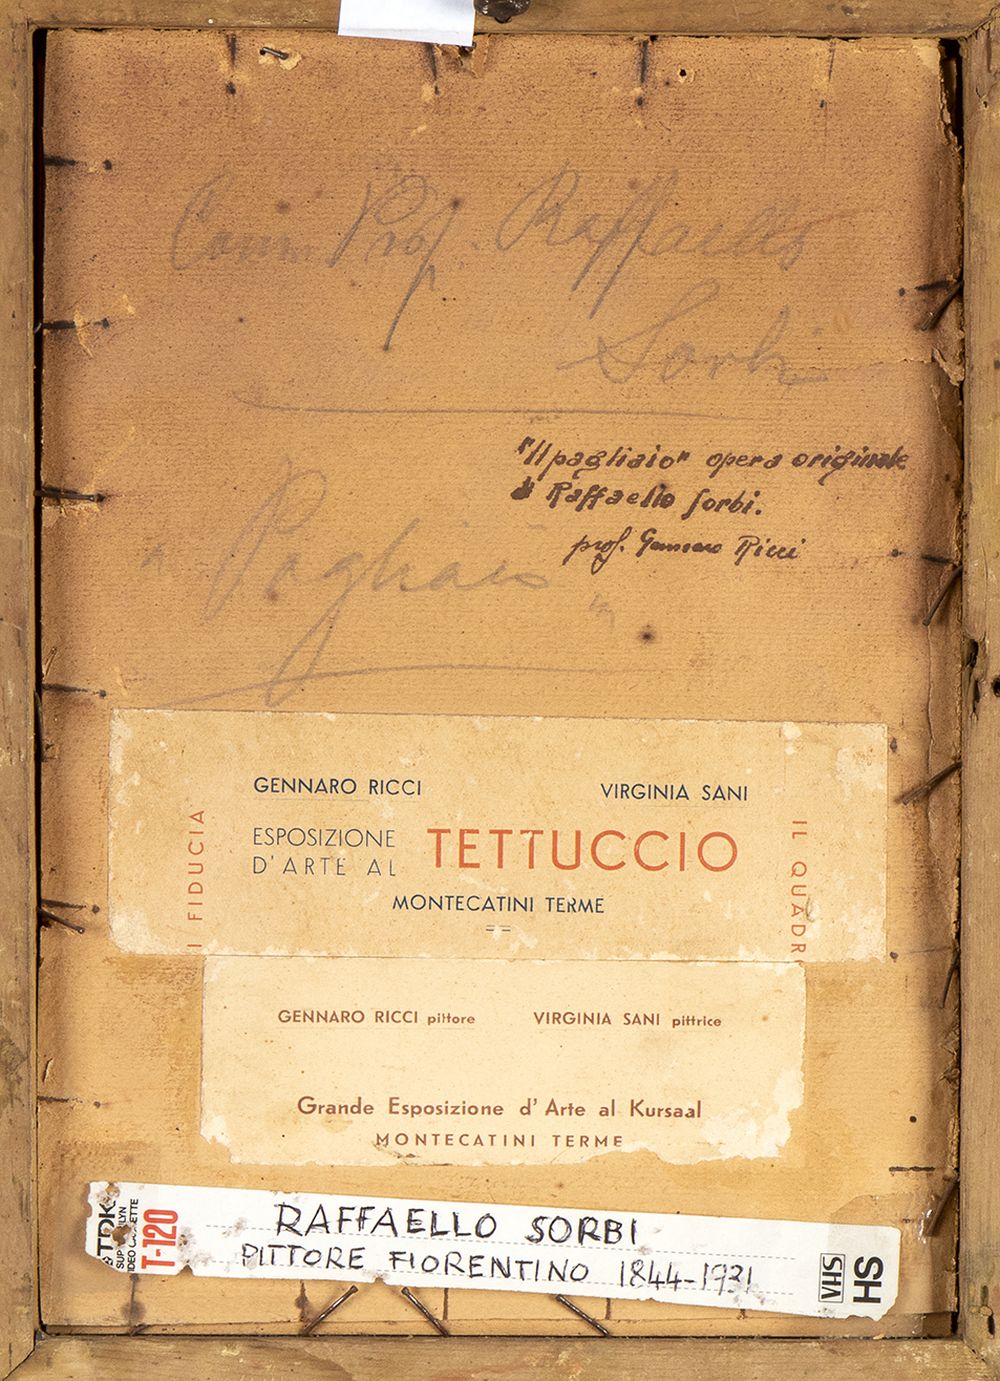 Comm. Prof. Raffaello
Sorbi
"Il pagliaio" opera originale
di Raffaello Sorbi.
prof. Gennaro Ricci
" Pagliaio "
GENNARO RICCI VIRGINIA SANI
I FIDUCIA
ESPOSIZIONE
D'ARTE AL TETTUCCIO
MONTECATINI TERME
IL QUADR
GENNARO RICCI pittore VIRGINIA SANI pittrice
Grande Esposizione d'Arte al Kursaal
MONTECATINI TERME
TDK
T-120
RAFFAELLO SORBI
PITTORE FIORENTINO 1844-1931
VHS
HS